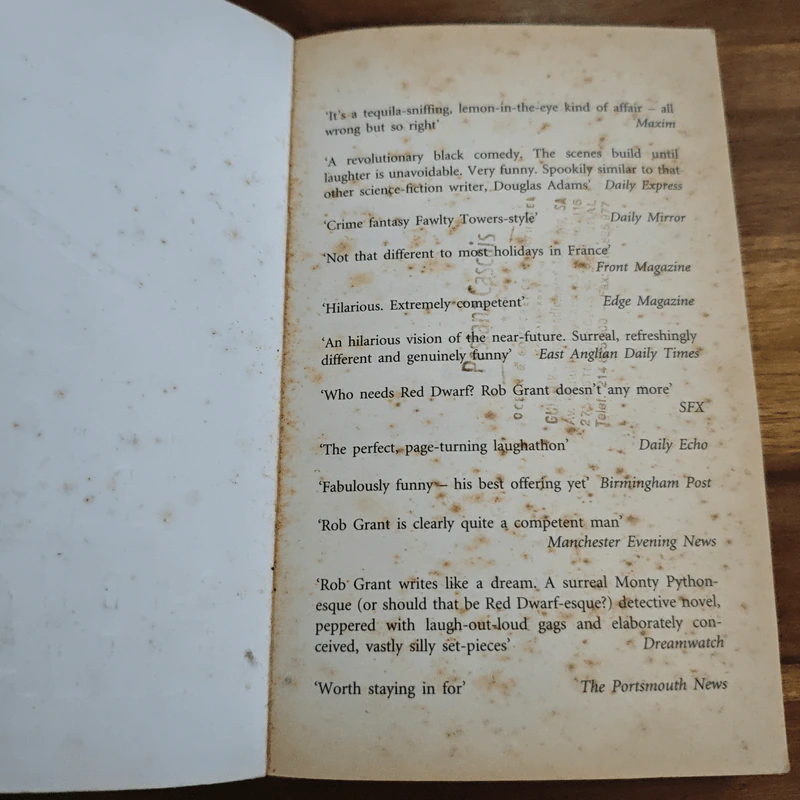 ‘It's a tequila-sniffing, lemon-in-the-eye kind of affair – all
wrong but so right’ Maxim
‘A revolutionary black comedy. The scenes build until
laughter is unavoidable. Very funny. Spookily similar to that
other science-fiction writer, Douglas Adams’ Daily Express
‘Crime fantasy Fawlty Towers-style’ Daily Mirror
‘Not that different to most holidays in France’
Front Magazine
‘Hilarious. Extremely competent’ Edge Magazine
‘An hilarious vision of the near-future. Surreal, refreshingly
different and genuinely funny’ East Anglian Daily Times
‘Who needs Red Dwarf? Rob Grant doesn't any more’
SFX
‘The perfect, page-turning laughathon’ Daily Echo
‘Fabulously funny – his best offering yet’ Birmingham Post
‘Rob Grant is clearly quite a competent man’
Manchester Evening News
‘Rob Grant writes like a dream. A surreal Monty Python-
esque (or should that be Red Dwarf-esque?) detective novel,
peppered with laugh-out-loud gags and elaborately con-
ceived, vastly silly set-pieces’ Dreamwatch
‘Worth staying in for’ The Portsmouth News
Cascais